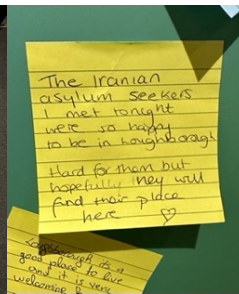 The Iranian
asylum seekers
I met tonight
were so happy
to be in Loughborough
Hard for them but
hopefully they will
find their place
here ♡
Loughborough is a
good place to live
and it is very
welcoming